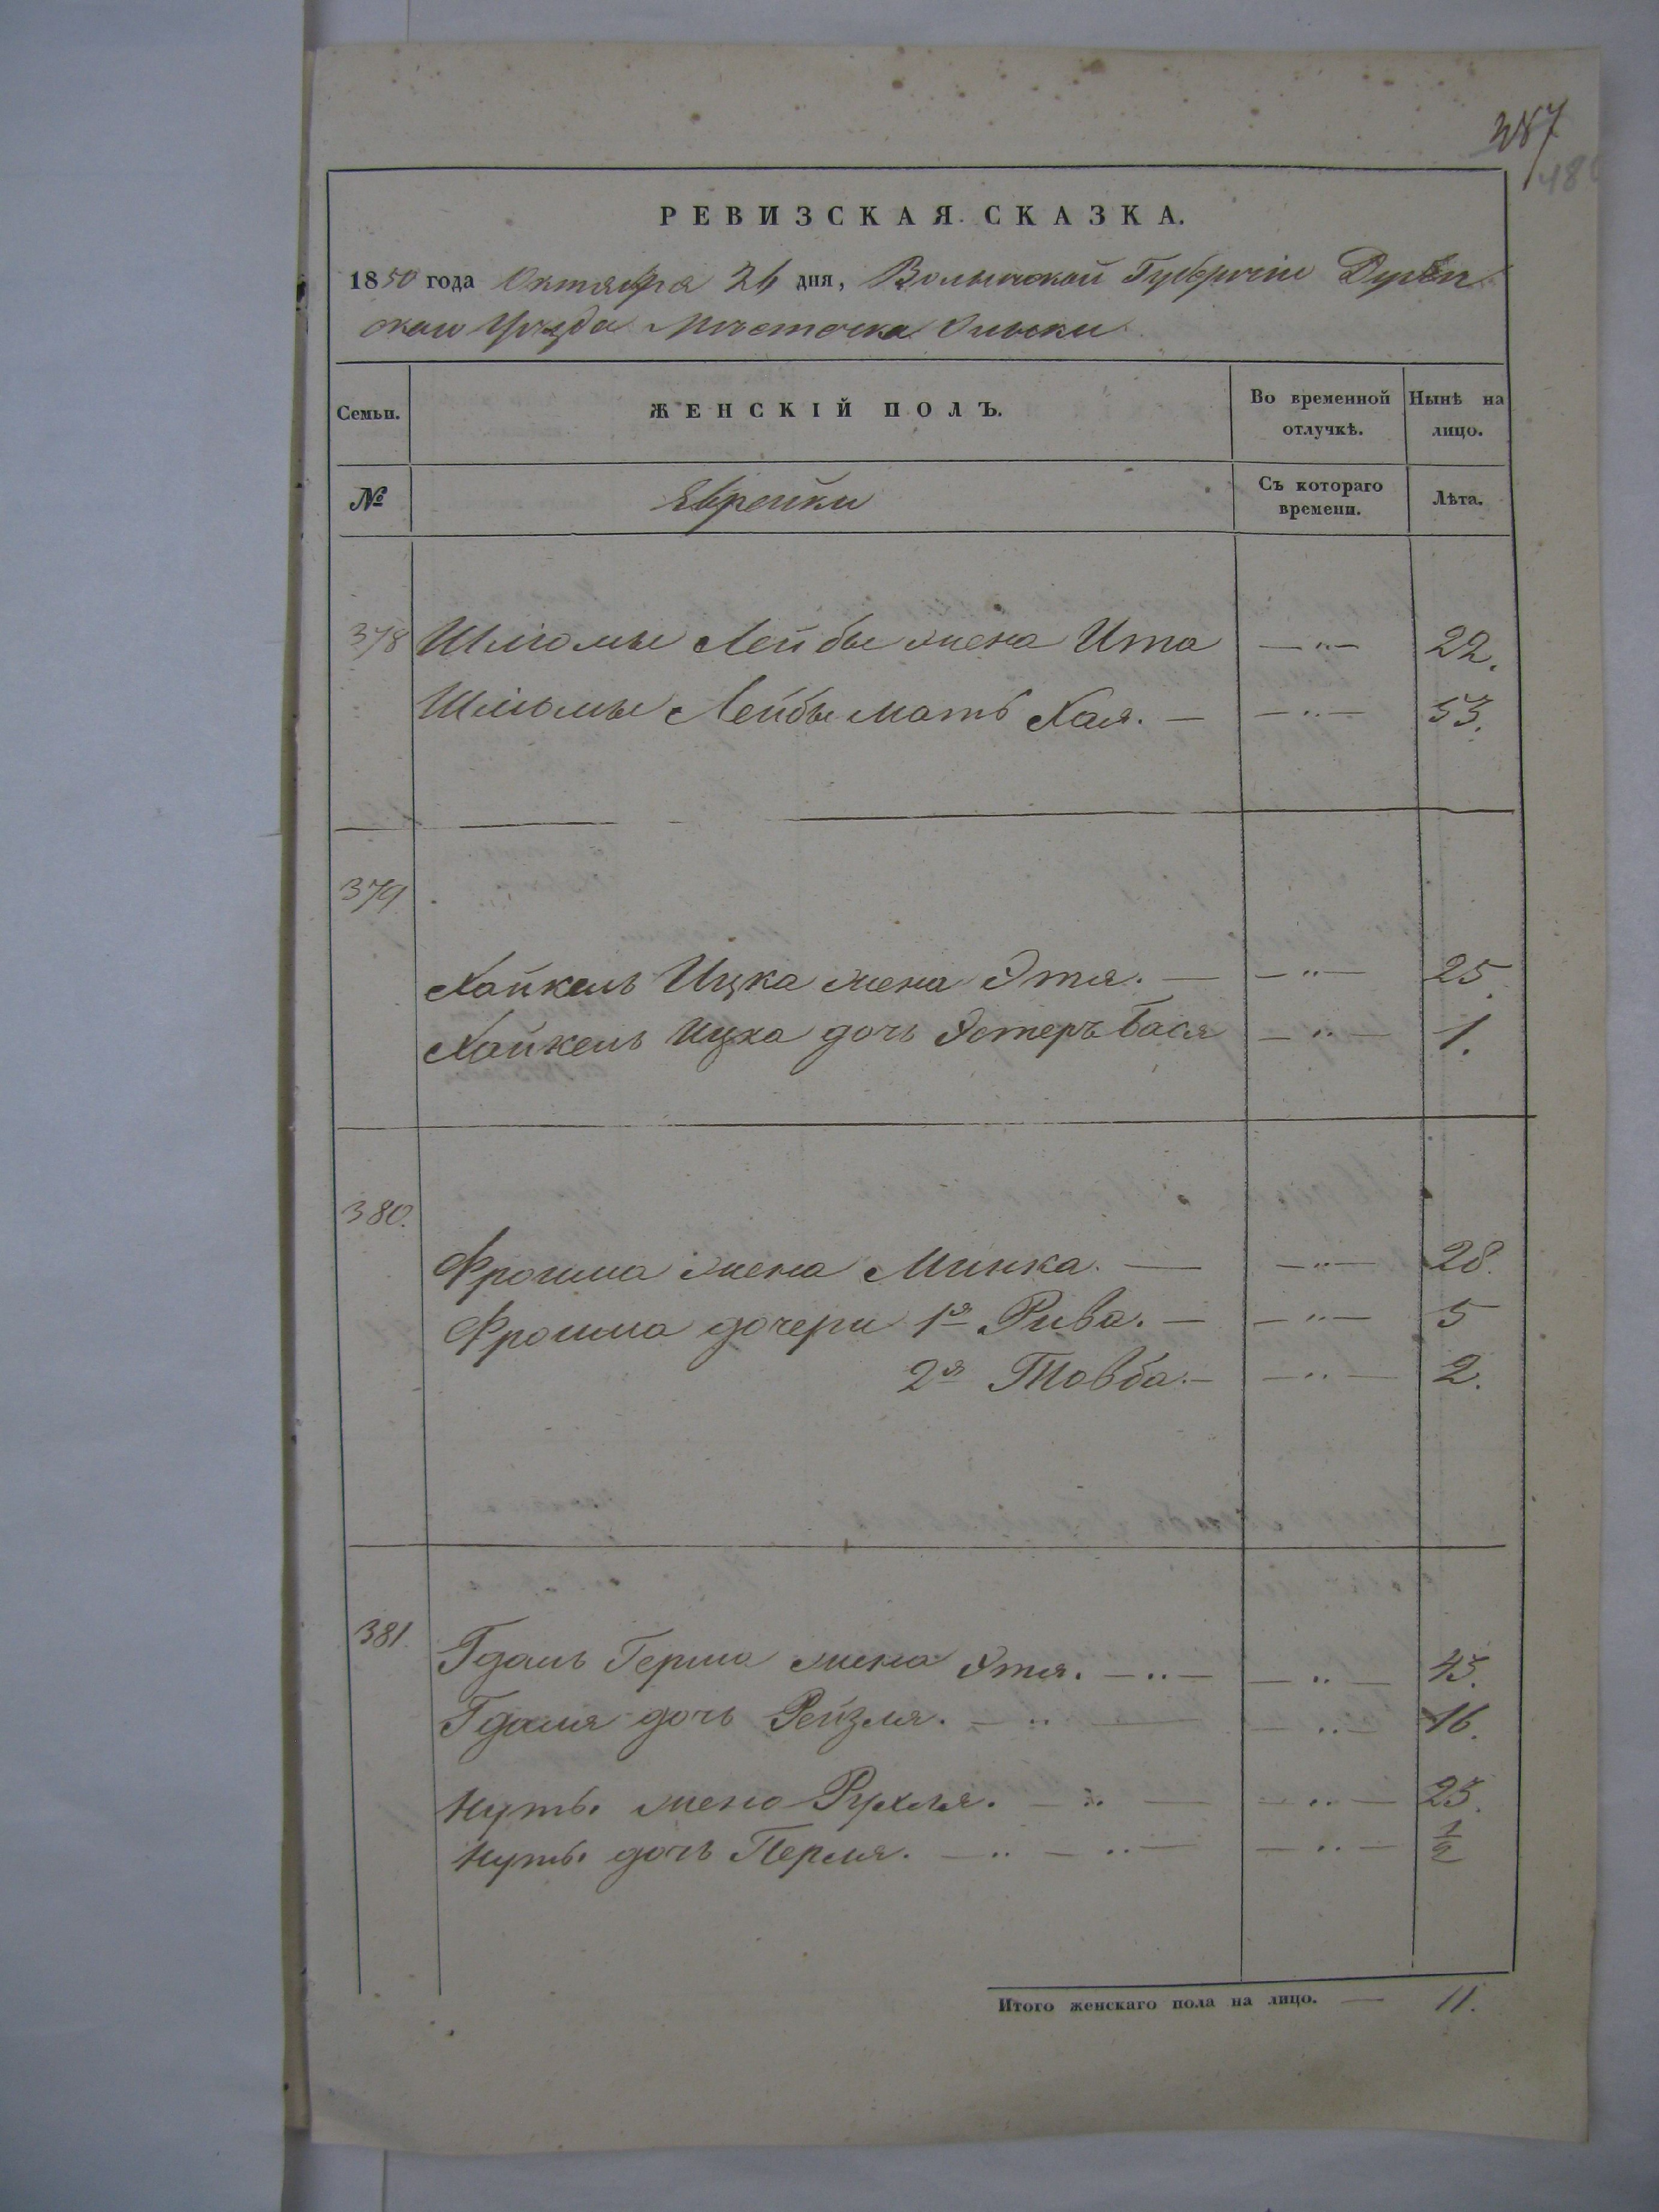 287
РЕВИЗСКАЯ СКАЗКА.
1850 года Октября 26 дня, Волынской Губернiи Дубен
скаго Уѣзда Мѣстечка Олыки
Семьи.
ЖЕНСКІЙ ПОЛЪ.
Во временной отлучкѣ.
Нынѣ на лицо.
№
Еврейки
Съ котораго времени.
Лѣта.
378 Шлiомы Лейбы жена Ита — „ — 22.
Шлiомы Лейбы мать Хая. — — „ — 53.
379
Хайкель Ицка жена Этя. — — „ — 25.
Хайкель Ицка дочь Эстеръ Бася — „ — 1.
380.
Фроима жена Минка. — — „ — 28.
Фроима дочери 1я Рива. — — „ — 5
2я Товба. — — „ — 2.
381. Гдаль Герша жена Этя. — „ — — „ — 43.
Гдаля дочь Рейзля. — „ — — „ — 16.
Нутъ. жена Рухля. — „ — — „ — 23.
Нутъ. дочь Перля. — „ — „ — — „ — 1/2
Итого женскаго пола на лицо. — 11.